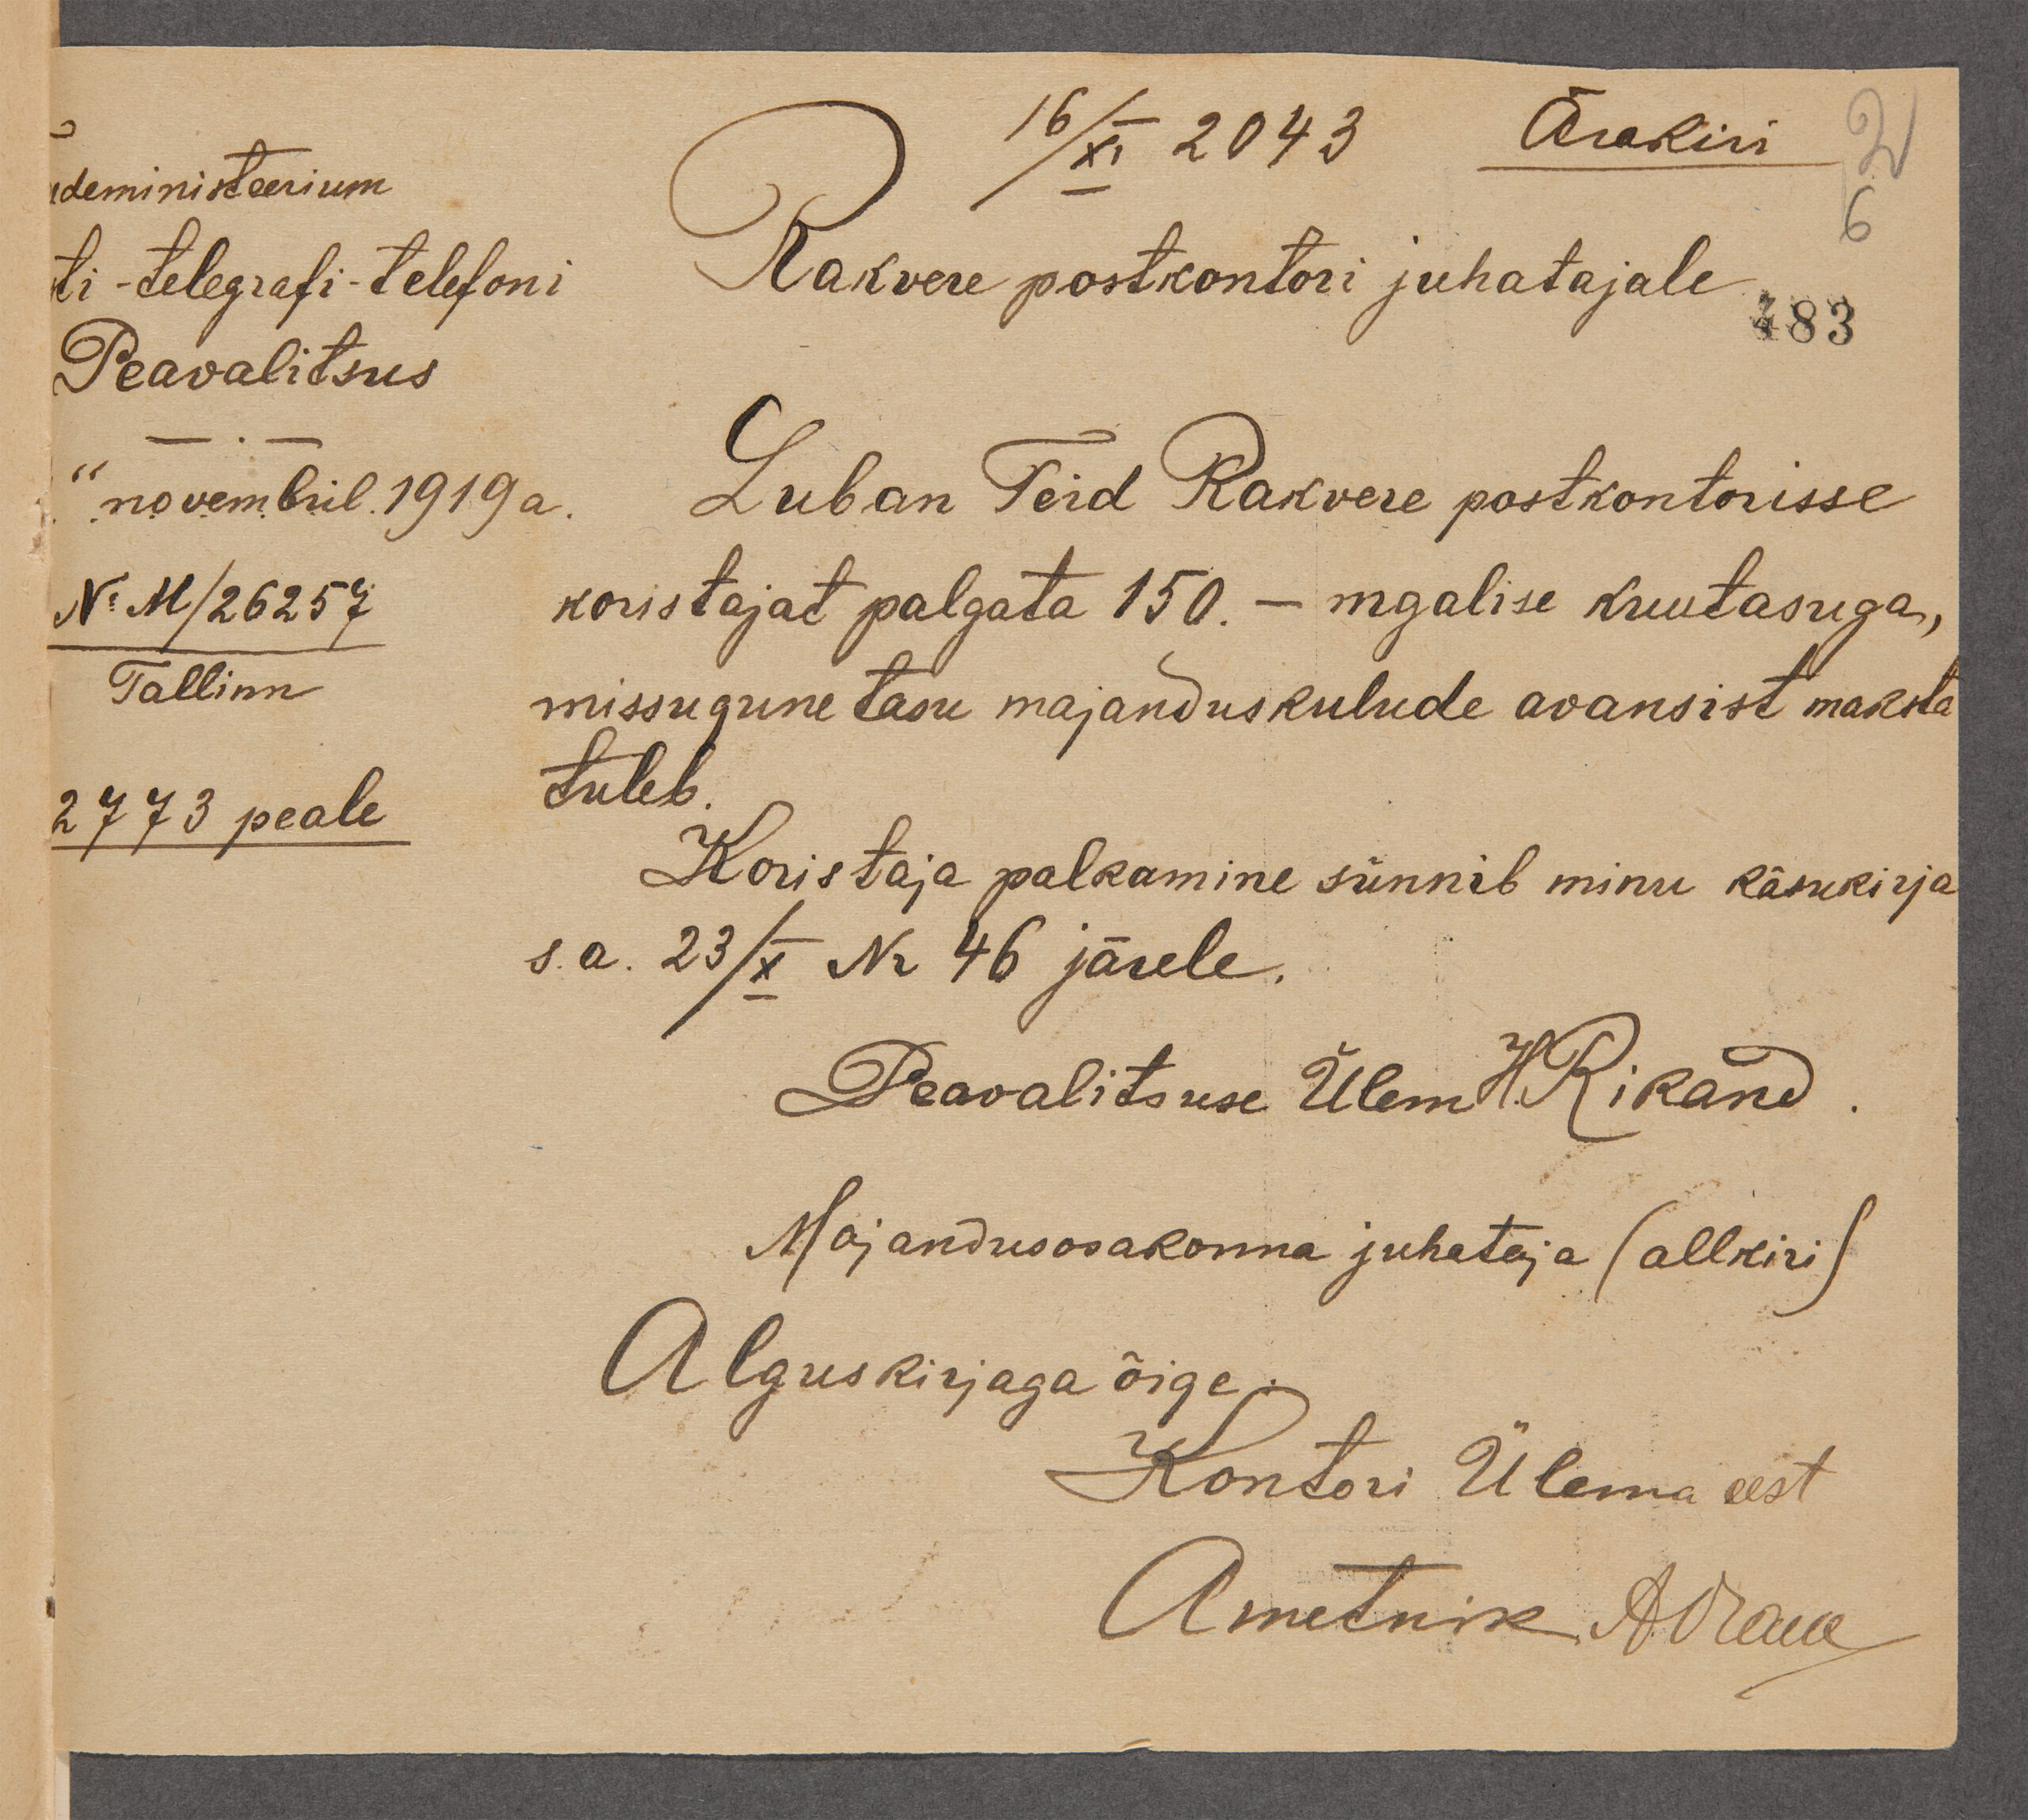 16/XI 2043 Ärakiri
2
6
deministeerium
ti-telegrafi-telefoni
Peavalitsus
" novembril 1919 a.
Nr M/26257
Tallinn
2773 peale
Rakvere postkontori juhatajale
483
Luban Teid Rakvere postkontorisse
koristajat palgata 150.- mgalise kuutasuga,
missugune tasu majanduskulude avansist maksta
tuleb.
Koristaja palkamine sünnib minu käsukirja
s.a. 23/X Nr 46 järele.
Peavalitsuse Ülem H. Rikand.
Majandusosakonna juhataja (allkiri)
Alguskirjaga õige:
Kontori Ülema eest
Ametnik